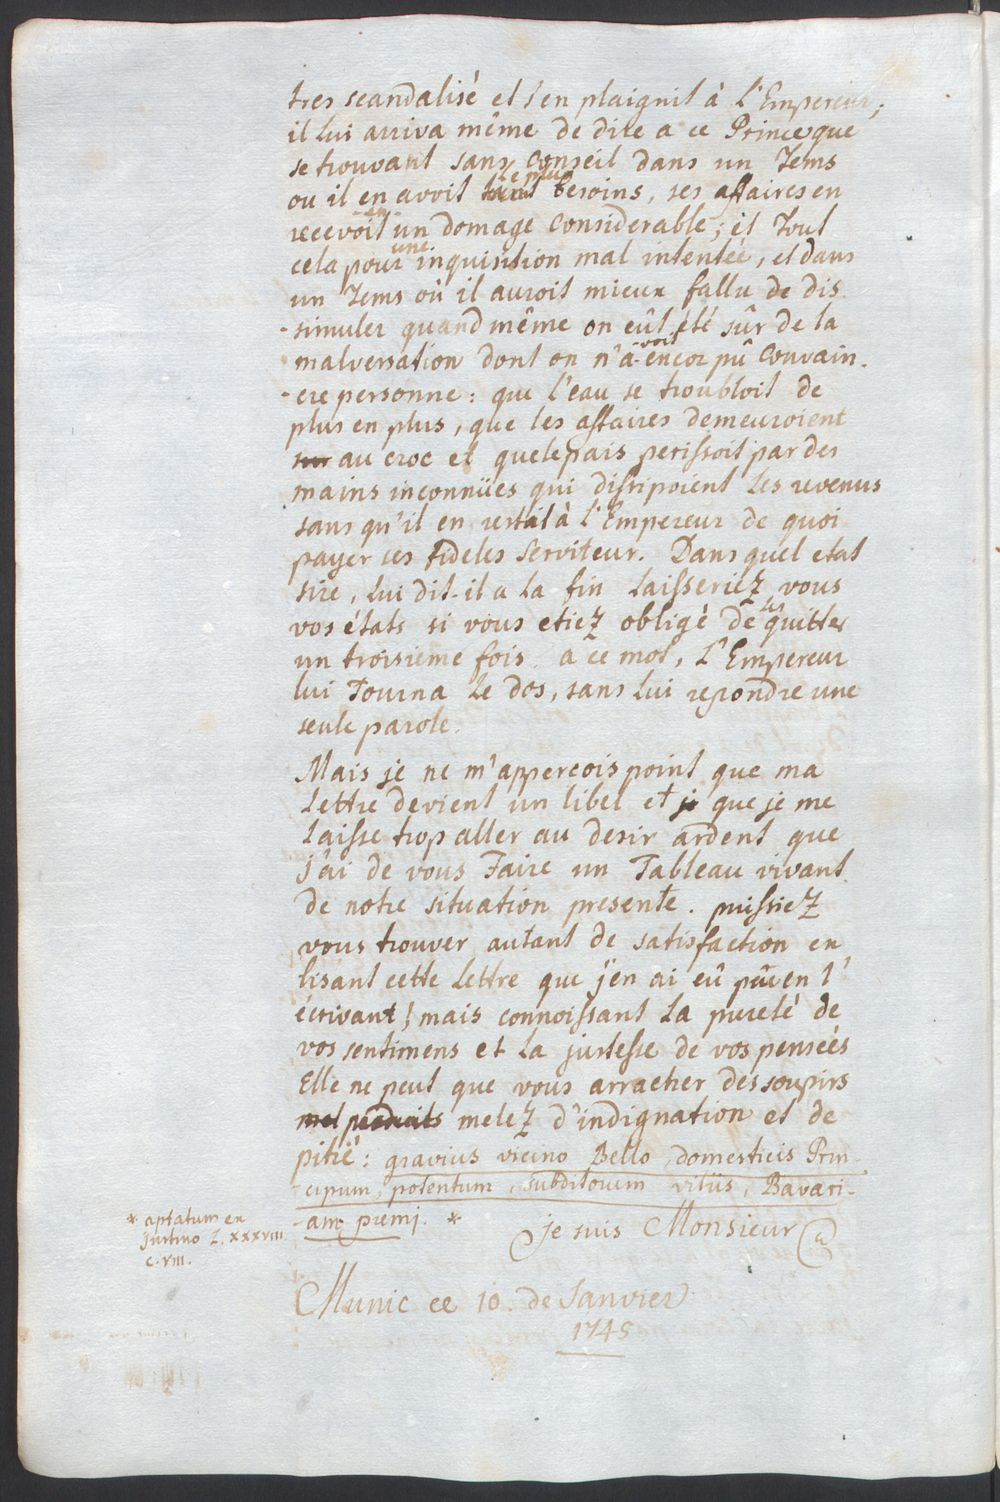 tres scandalisé et s'en plaignit à l'Empereur;
il lui arriva même de dire a ce Prince que
se trouvant sans conseil dans un Tems
ou il en avoit le plus besoins, ses affaires en
recevoit un domage considerable; et Tout
cela pour une inquisition mal intentée, et dans
un Tems où il auroit mieux fallu de dis
-simuler quand même on eût été sûr de la
malversation dont on n'avoit encor pû convain-
-cre personne: que l'eau se troubloit de
plus en plus, que les affaires demeuroient
au croc et que le païs perissoit par des
mains inconnües qui dissipoient les revenus
sans qu'il en restait à l'Empereur de quoi
payer ses fideles Serviteur. Dans quel etat
sire, lui dit-il a la fin laisseriez vous
vos états si vous etiez obligé de les quitter
un troisieme fois. a ce mot, l'Empereur
lui Tourna le dos, sans lui repondre une
seule parole.
Mais je ne m'appercois point que ma
Lettre devient un libel et que je me
laisse trop aller au desir ardent que
j'ai de vous Faire un Tableau vivant
de notre situation presente. puissiez
vous trouver autant de satisfaction en
lisant cette lettre que j'en ai eû en l'
écrivant! mais connoissant la pureté de
vos sentimens et la justesse de vos pensées
Elle ne peut que vous arracher des soupirs
melez d'indignation et de
pitié: gravius vicino Bello, domesticis Prin-
-cipum, potentum, subditorum vitiis, Bavari-
-am premi. *
* aptatum ex
Justino L. XXXVIII
c. VIII.
je suis Monsieur
Munic ce 10. de Janvier
1745